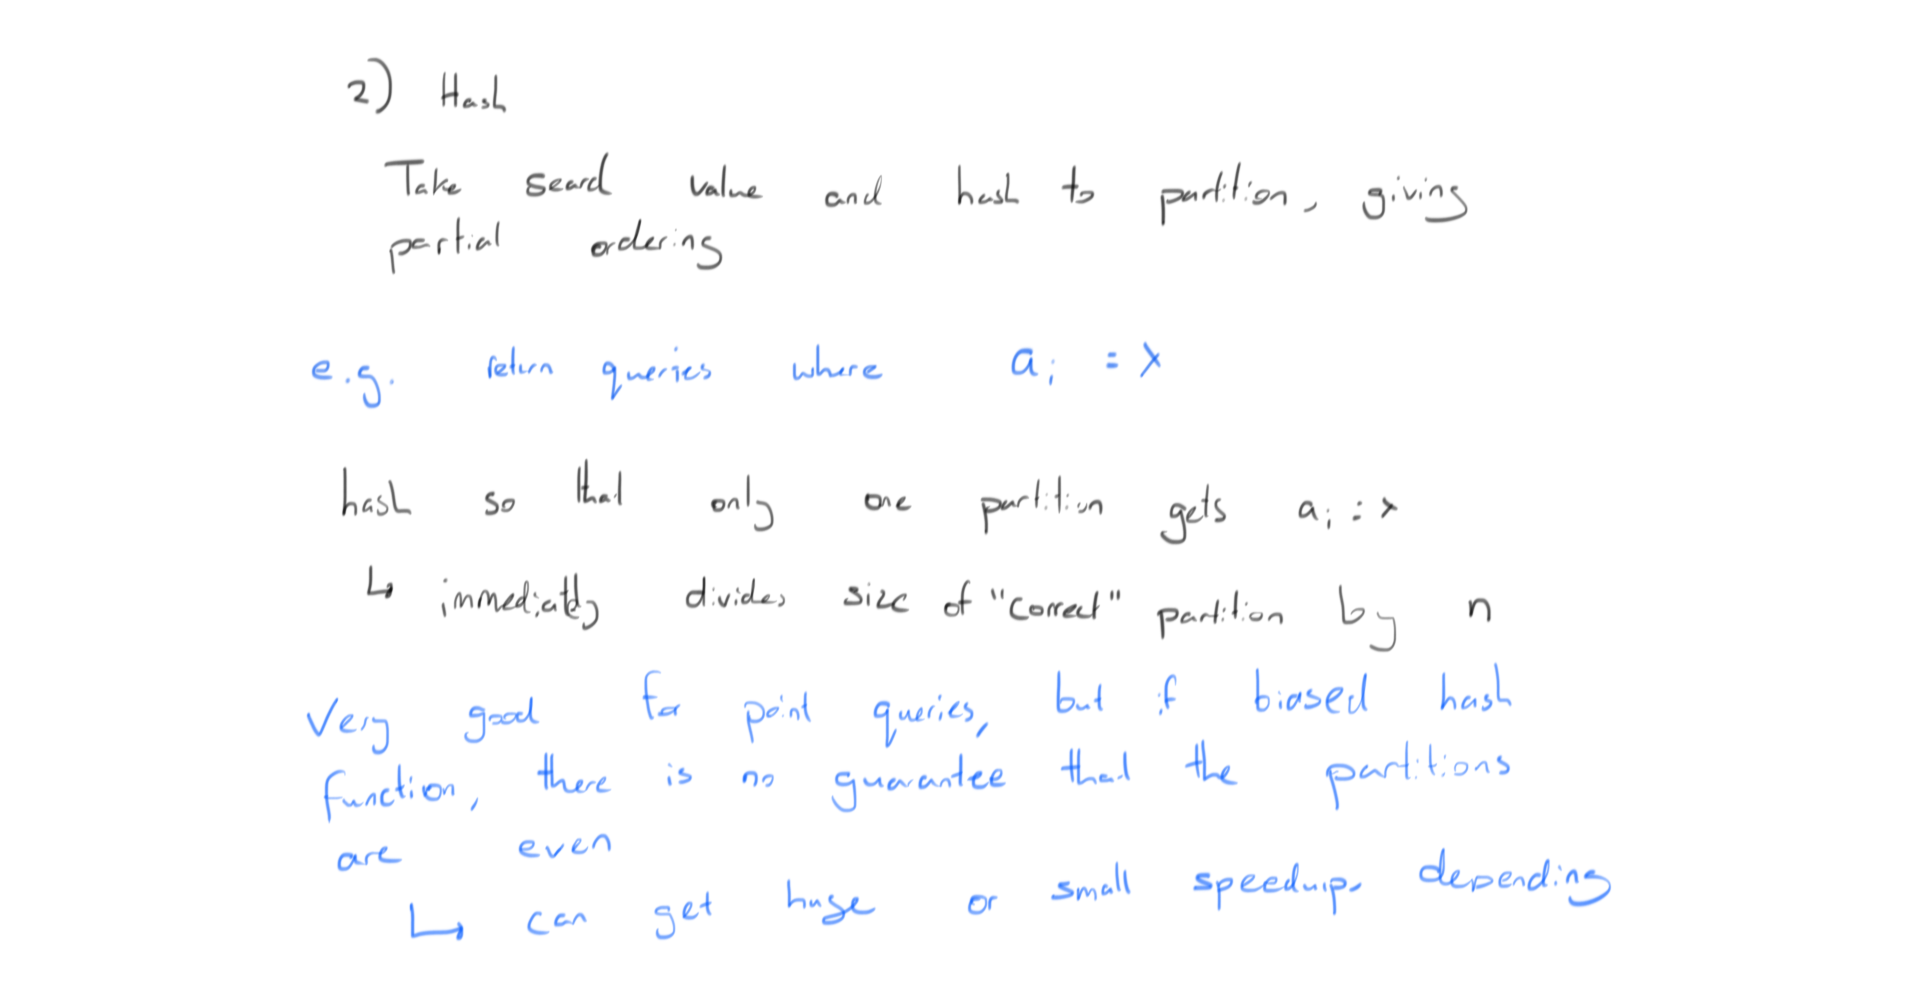 2) Hash
Take search value and hash to partition, giving
partial ordering
e.g. return queries where ai = x
hash so that only one partition gets ai = x
↳ immediatly divides size of "correct" partition by n
Very good for point queries, but if biased hash
function, there is no guarantee that the partitions
are even
↳ can get huge or small speedup, depending